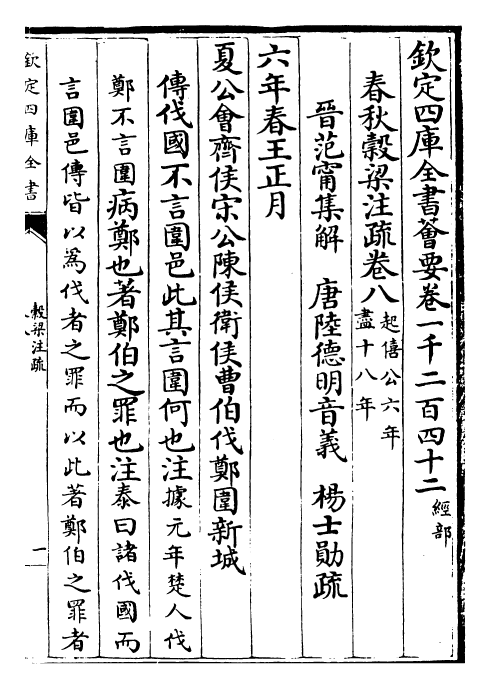 欽定四庫全書薈要卷一千二百四十二 經部
春秋穀梁注疏卷八 起僖公六年盡十八年
晉范甯集解 唐陸德明音義 楊士勛疏
六年春王正月
夏公會齊侯宋公陳侯衛侯曹伯伐鄭圍新城
傳伐國不言圍邑此其言圍何也注據元年楚人伐
鄭不言圍病鄭也著鄭伯之罪也注泰曰諸伐國而
言圍邑傳皆以為伐者之罪而以此著鄭伯之罪者
欽定四庫全書
穀梁注疏
一